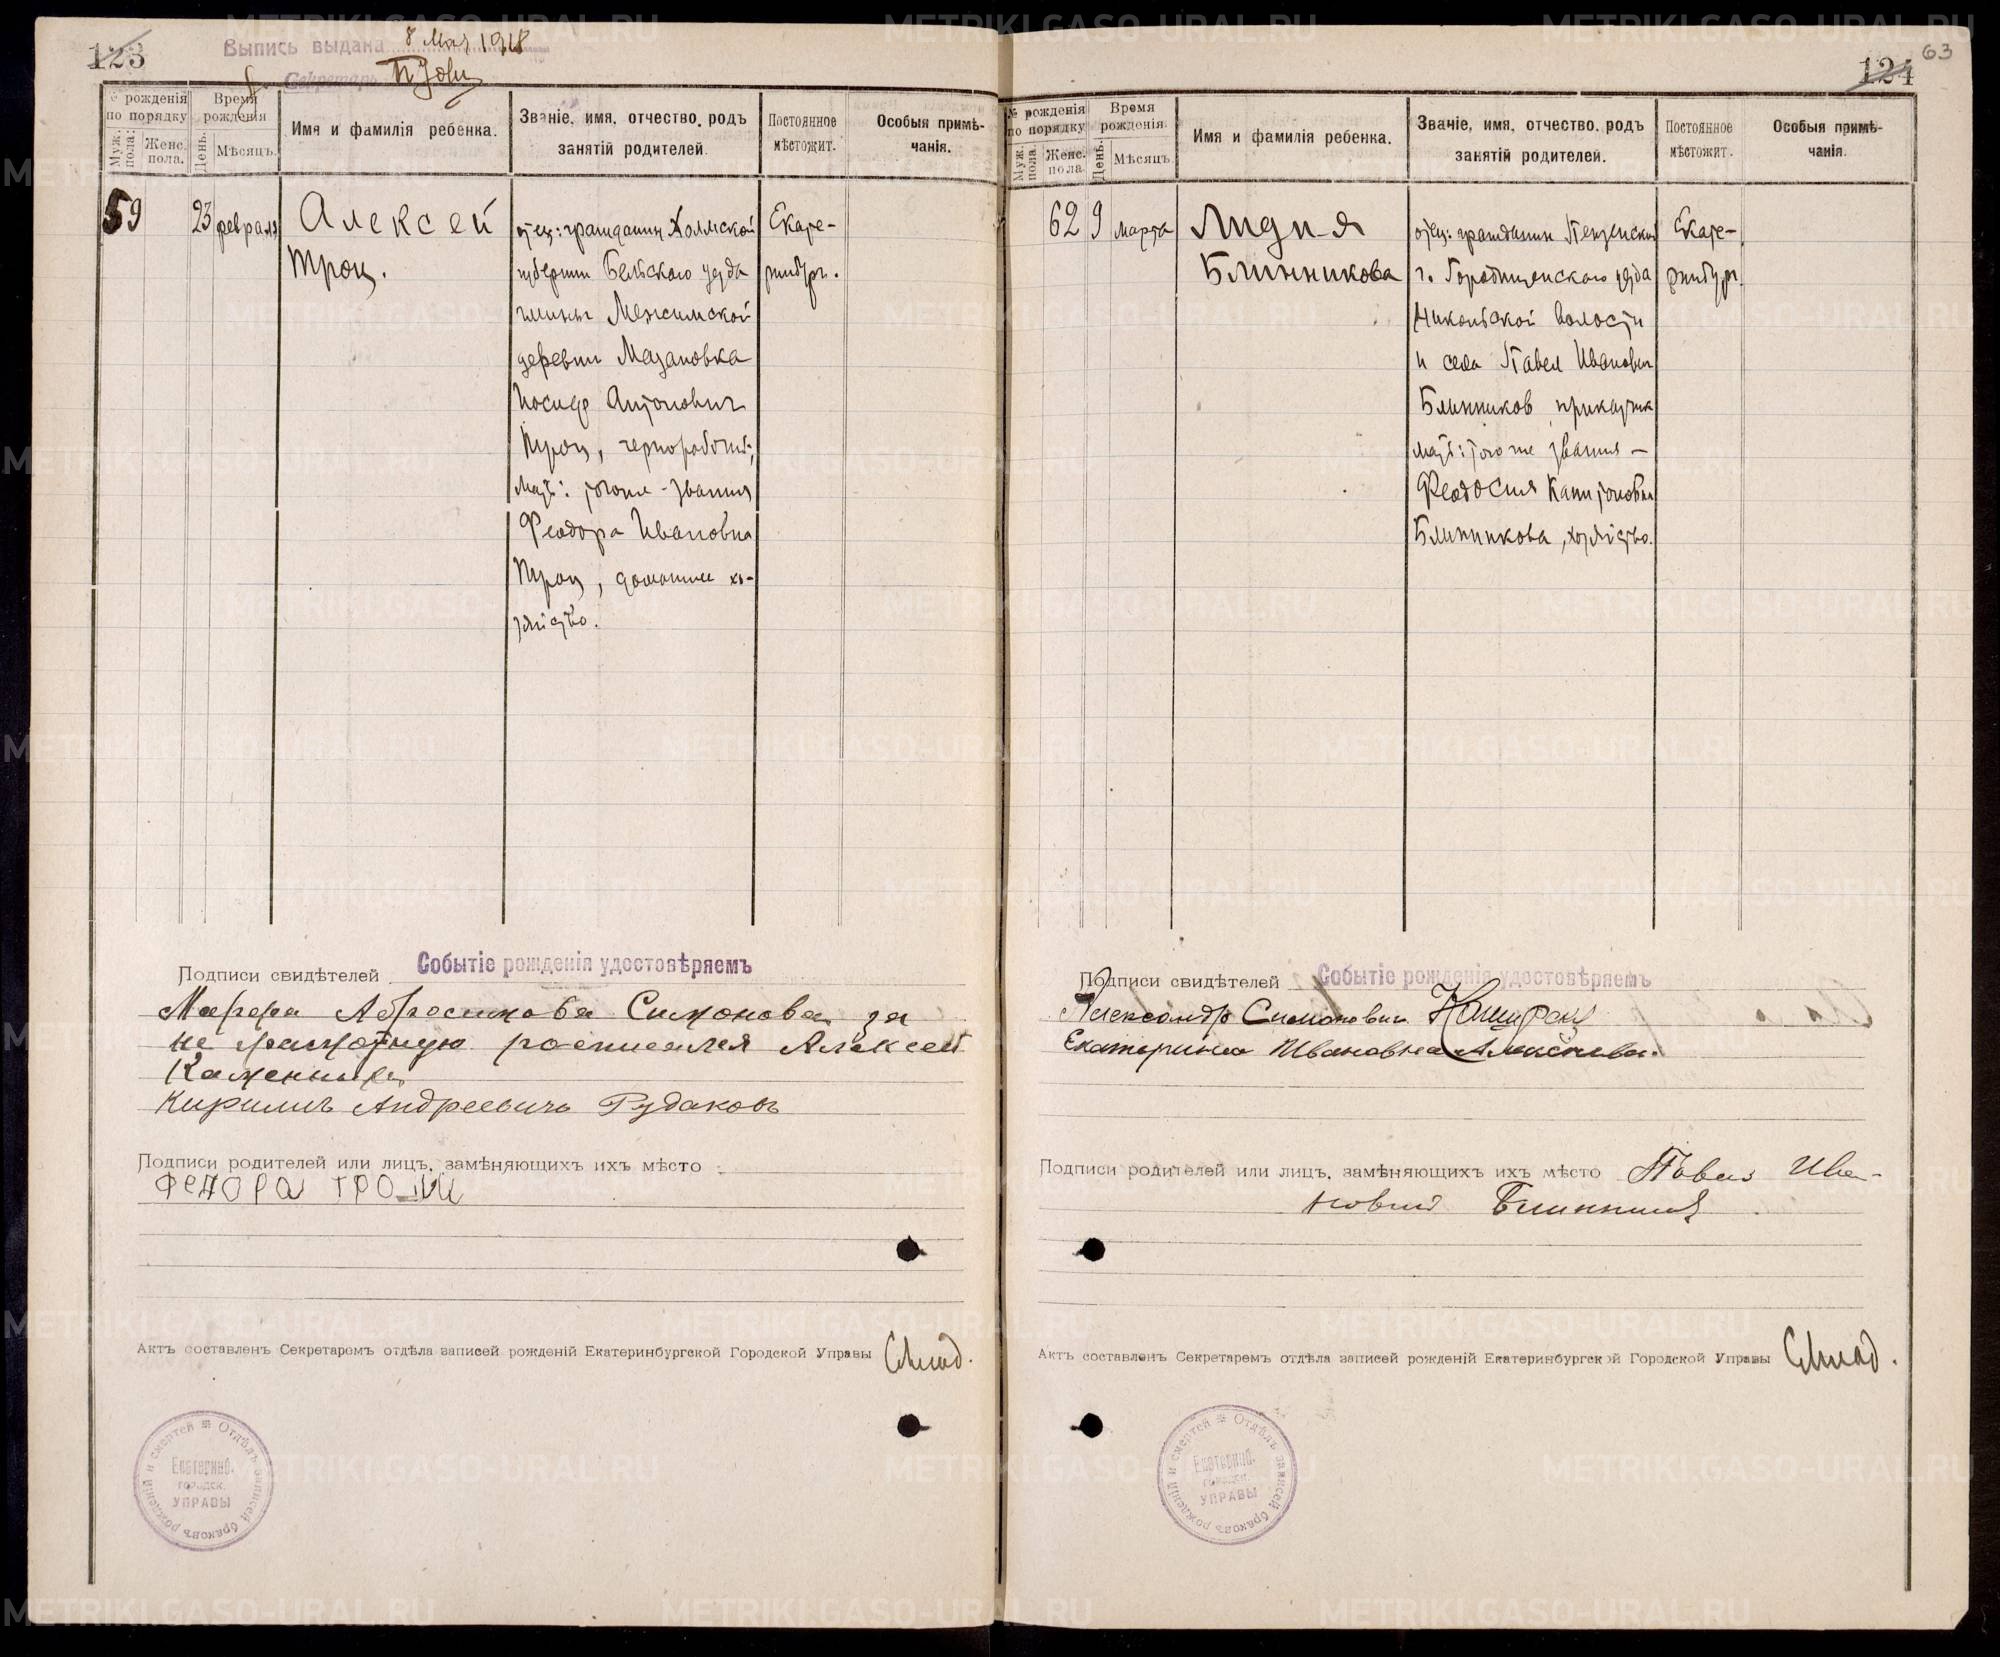 123
Выпись выдана 8 Мая 1918
Секретарь
№ рожденія по порядку
Муж. пола.
Женс. пола.
Время рожденія
День.
Мѣсяцъ.
Имя и фамилія ребенка.
Званіе, имя, отчество, родъ занятій родителей.
Постоянное мѣстожит.
Особыя примѣчанія.
59
23
февраля
Алексей
Троц.
отец: гражданин Холмской
губернии Бельского уезда
гмины
деревни Мазановка
Иосиф Антонович
Троц, чернорабочий,
Мать: тогоже звания
Феодора Ивановна
Троц, домашнее хо-
зяйство.
Екате-
ринбург.
Подписи свидѣтелей
Событіе рожденія удостовѣряемъ
Марфа Абросимова Симонова за
не грамотную росписался Алексей
Кирилъ Андреевичъ Рудаковъ
Подписи родителей или лицъ, замѣняющихъ ихъ мѣсто
Федора Троц
Актъ составленъ Секретаремъ отдѣла записей рожденій Екатеринбургской Городской Управы
Отдѣлъ записей браковъ рожденій и смертей
Екатеринб.
городск.
УПРАВЫ
124
63
№ рожденія по порядку
Муж. пола.
Женс. пола.
Время рожденія
День.
Мѣсяцъ.
Имя и фамилія ребенка.
Званіе, имя, отчество, родъ занятій родителей.
Постоянное мѣстожит.
Особыя примѣчанія.
62
9
марта
Лидия
Блинникова
отец: гражданин Пензенской
г. Городищенского уезда
Никольской волости
и села Павел Иванович
Блинников приказчик
мать: того же звания —
Феодосия Капитоновна
Блинникова, хозяйство.
Екате-
ринбург.
Подписи свидѣтелей
Событіе рожденія удостовѣряемъ
Александр Симонович
Екатерина Ивановна
Подписи родителей или лицъ, замѣняющихъ ихъ мѣсто Павел Ива-
нович Блинников
Актъ составленъ Секретаремъ отдѣла записей рожденій Екатеринбургской Городской Управы
Отдѣлъ записей браковъ рожденій и смертей
Екатеринб.
городск.
УПРАВЫ
METRIKI.GASO-URAL.RU